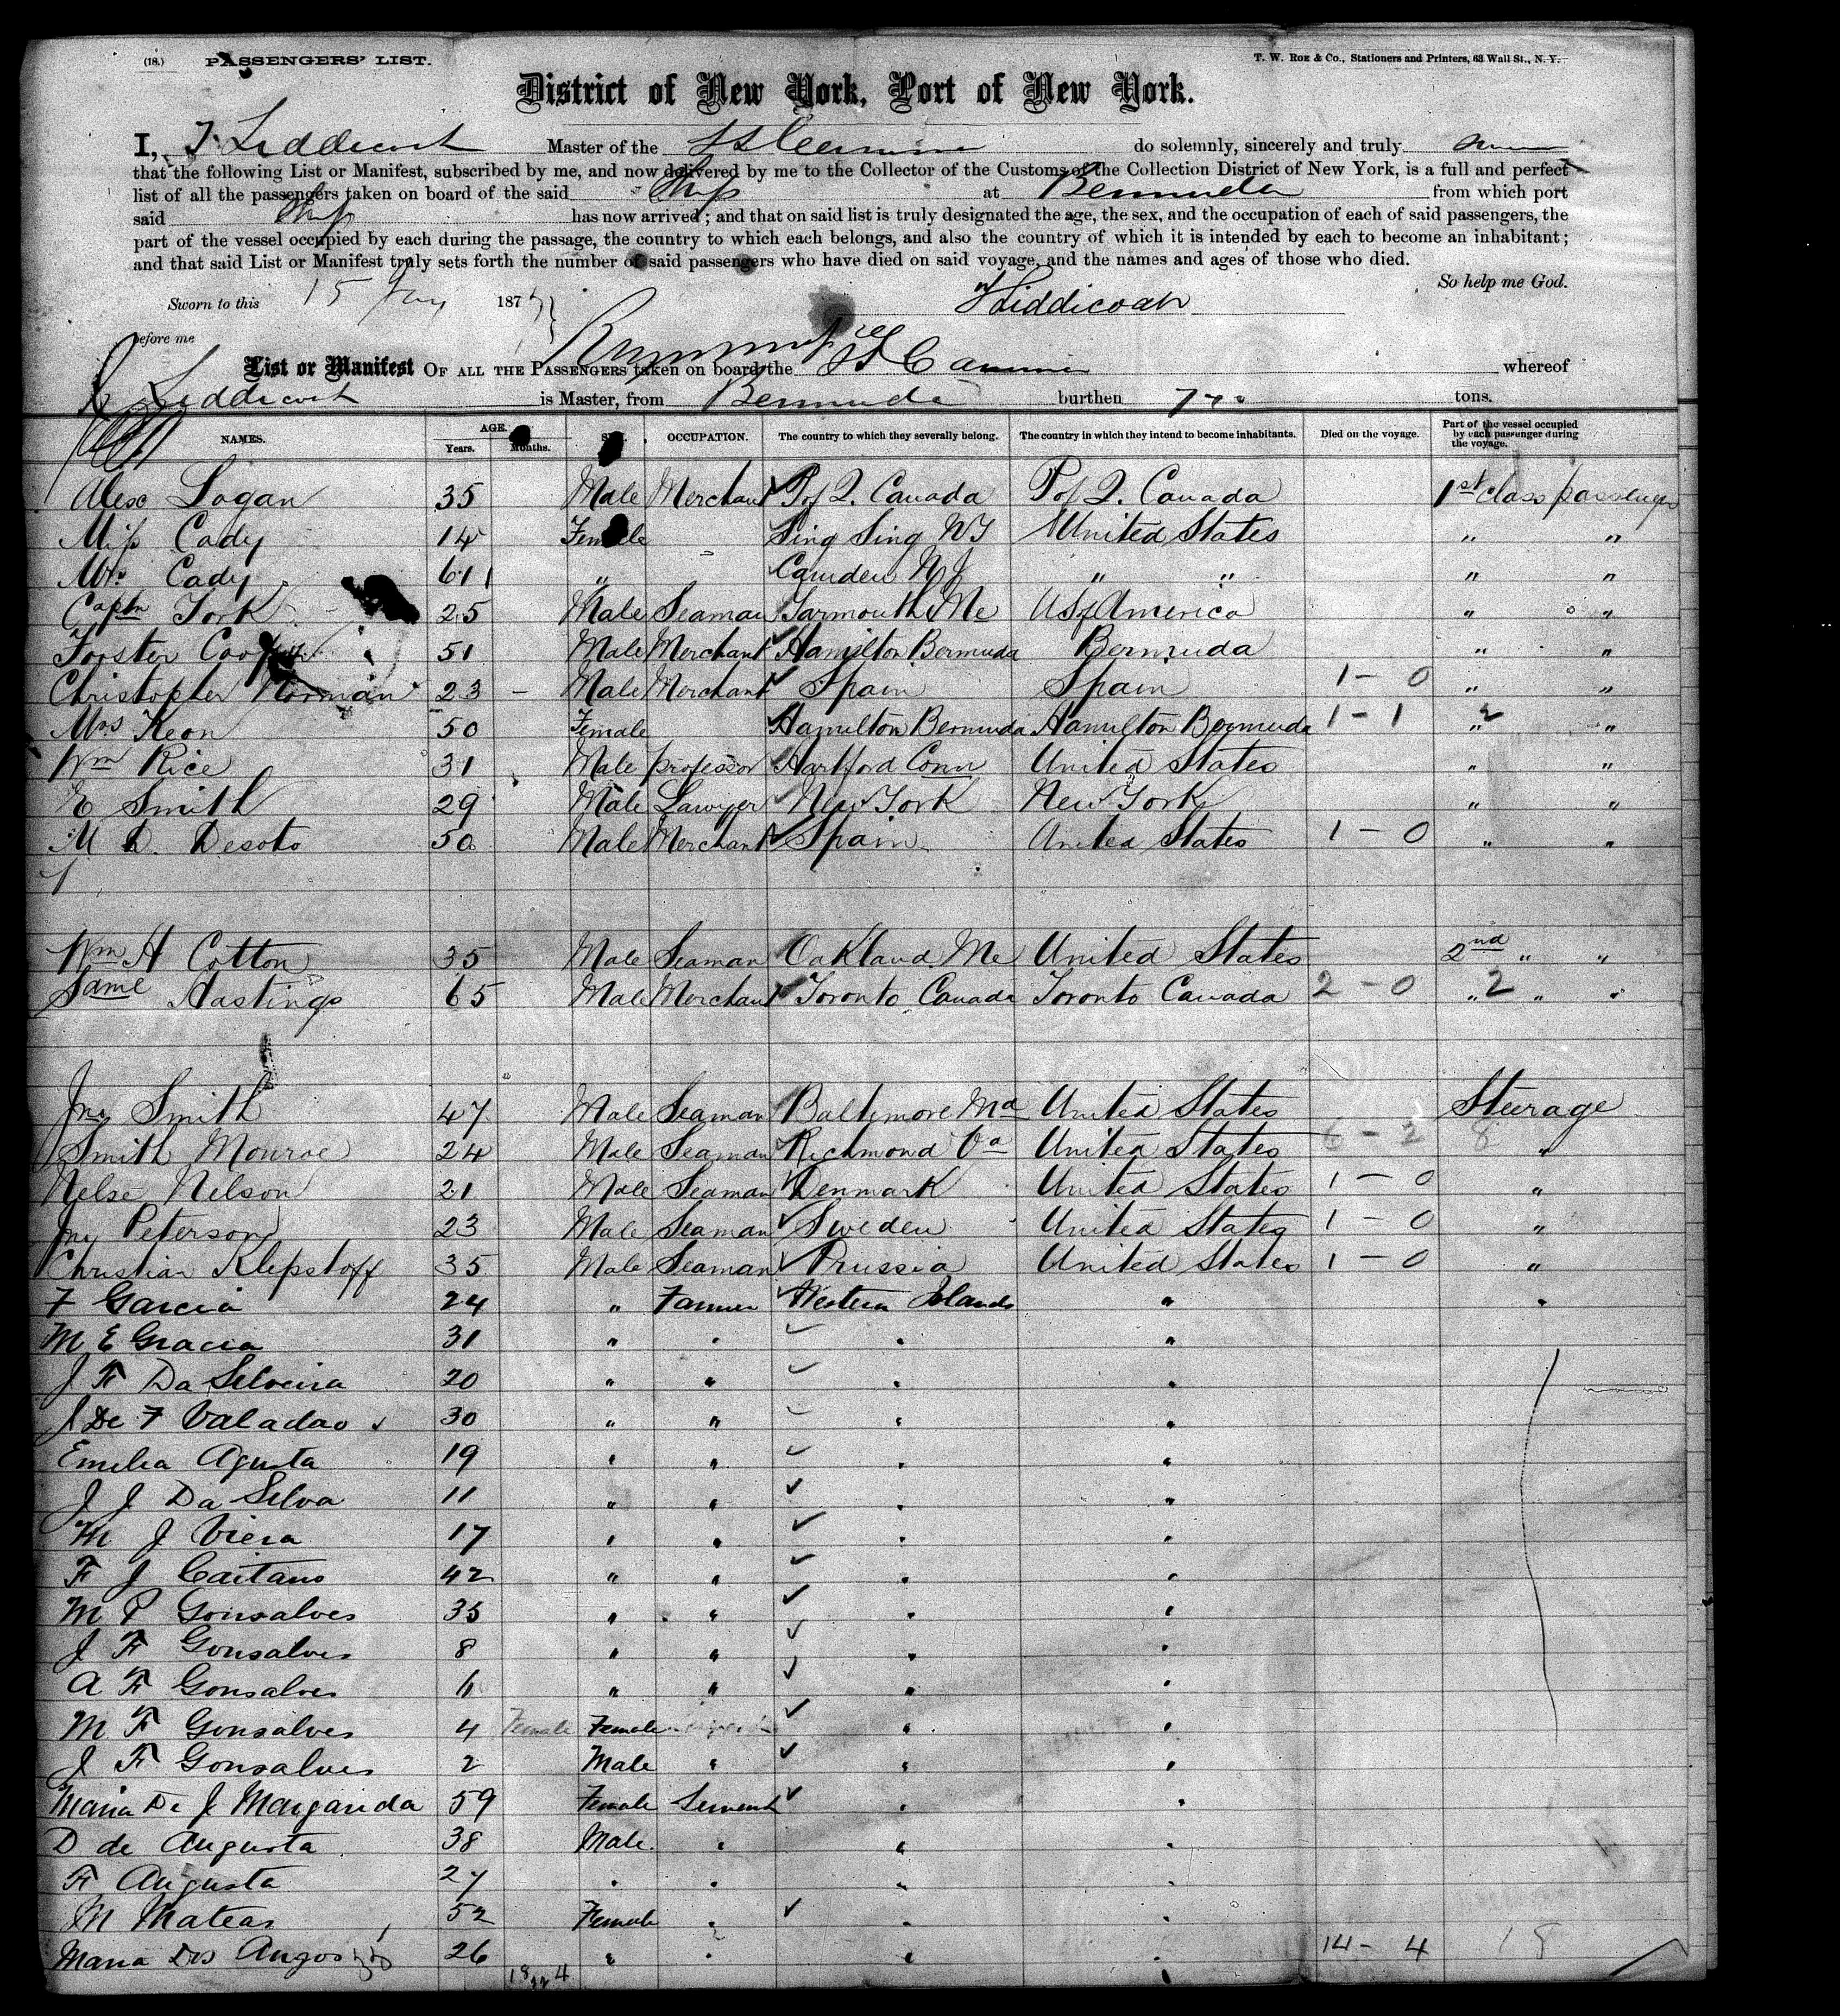 (18.) PASSENGERS' LIST. T. W. ROE & CO., Stationers and Printers, 63 Wall St., N. Y.
District of New York, Port of New York.
I, Liddicoat Master of the SS do solemnly, sincerely and truly
that the following List or Manifest, subscribed by me, and now delivered by me to the Collector of the Customs of the Collection District of New York, is a full and perfect
list of all the passengers taken on board of the said Ship at Bermuda from which port
said Ship has now arrived; and that on said list is truly designated the age, the sex, and the occupation of each of said passengers, the
part of the vessel occupied by each during the passage, the country to which each belongs, and also the country of which it is intended by each to become an inhabitant;
and that said List or Manifest truly sets forth the number of said passengers who have died on said voyage, and the names and ages of those who died.
So help me God.
Sworn to this 15 187 Liddicoat
before me
List or Manifest OF ALL THE PASSENGERS taken on board the whereof
Liddicoat is Master, from Bermuda burthen tons.
NAMES. AGE. Years. Months. SEX. OCCUPATION. The country to which they severally belong. The country in which they intend to become inhabitants. Died on the voyage. Part of the vessel occupied by each passenger during the voyage.
Alex Logan 35 Male Merchant P of Q. Canada P of Q. Canada 1st class passenger
Miss Cady 14 Female Sing Sing NY United States " "
Mrs Cady 61 " Camden NJ " " " "
Captn York 25 Male Seaman Yarmouth Me US of America " "
Forster Cooper 51 Male Merchant Hamilton Bermuda Bermuda " "
Christopher Norman 23 - Male Merchant Spain Spain 1 - 0 " "
Mrs Keon 50 Female Hamilton Bermuda Hamilton Bermuda 1 - 1 2 " "
Wm Rice 31 Male professor Hartford Conn United States " "
E Smith 29 Male Lawyer New York New York " "
M D. Desoto 50 Male Merchant Spain United States 1 - 0 " "
Wm H Cotton 35 Male Seaman Oakland Me United States 2nd " "
Saml Hastings 65 Male Merchant Toronto Canada Toronto Canada 2 - 0 " 2 " "
Jno Smith 47 Male Seaman Baltimore Md United States Steerage
Smith Monroe 24 Male Seaman Richmond Va United States 6 - 2 8 "
Nelse Nelson 21 Male Seaman Denmark United States 1 - 0 "
Jno Peterson 23 Male Seaman Sweden United States 1 - 0 "
Christian Klepstoff 35 Male Seaman Prussia United States 1 - 0 "
F Garcia 24 " Farmer Western Islands " "
M E Gracia 31 " " " "
J F Da Silveira 20 " " " "
J De F Valadao 30 " " " "
Emilia Agusta 19 " " " "
J J Da Silva 11 " " " "
M J Viera 17 " " " "
F J Caitano 42 " " " "
M P Gonsalves 35 " " " "
J F Gonsalves 8 " " " "
A F Gonsalves 6 " " " "
M F Gonsalves 4 Female Female " "
J F Gonsalves 2 Male " " "
Maria De J Margarida 59 Female Servent " "
D de Augusta 38 Male " " "
F Augusta 27 " " " "
M Mateas 52 Female " " "
Maria Dos Angos 26 " " " " 14 - 4 18